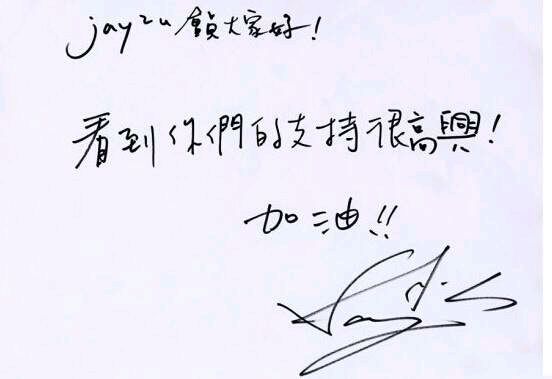 jay2u 顏大家好!
看到你們的支持很高興!
加油!!